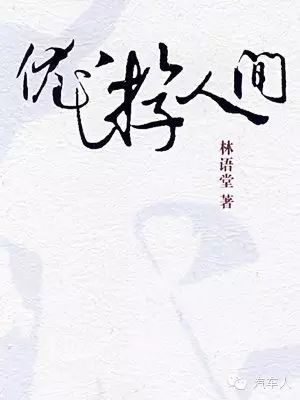 优游人间
林语堂 著
汽车人